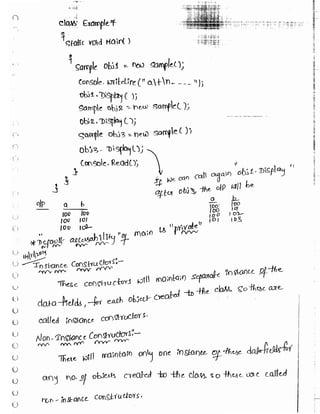 class Example4
{
static void Main( )
{
Sample obj1 = new Sample( );
Console.WriteLine("a\t\n_ _ _ _");
obj1.Display( );
Sample obj2 = new Sample( );
obj2.Display( );
Sample obj3 = new Sample( )
obj3.Display( );
Console.Read( );
}
}
If we can call again obj1.Display"
after obj3, the o/p will be
o/p a b
100 100
100 101
100 102
a b
100 100
100 101
100 102
101 103
* "Default accessability" of main is "private"
Instance Constructors:-
These constructors will maintain separate instance of the
data-fields, for each object created to the class. So these are
called instance constructors.
Non-Instance Constructors:-
There will maintain only one instance of these data fields for
any no. of objects created to the class so these are called
non-instance constructors.